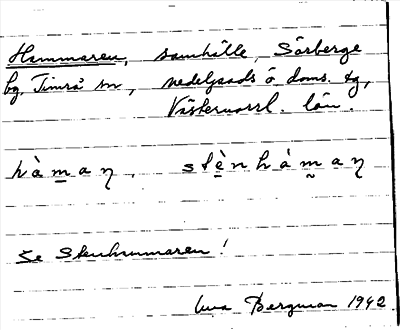 Hammaren, samhälle, Sörberge
by, Timrå sn, Medelpads ö. doms. tg,
Västernorrl. län.
hàm̲aη, stὲnhàm̰aη
Se Stenhammaren!
Bergman 1942